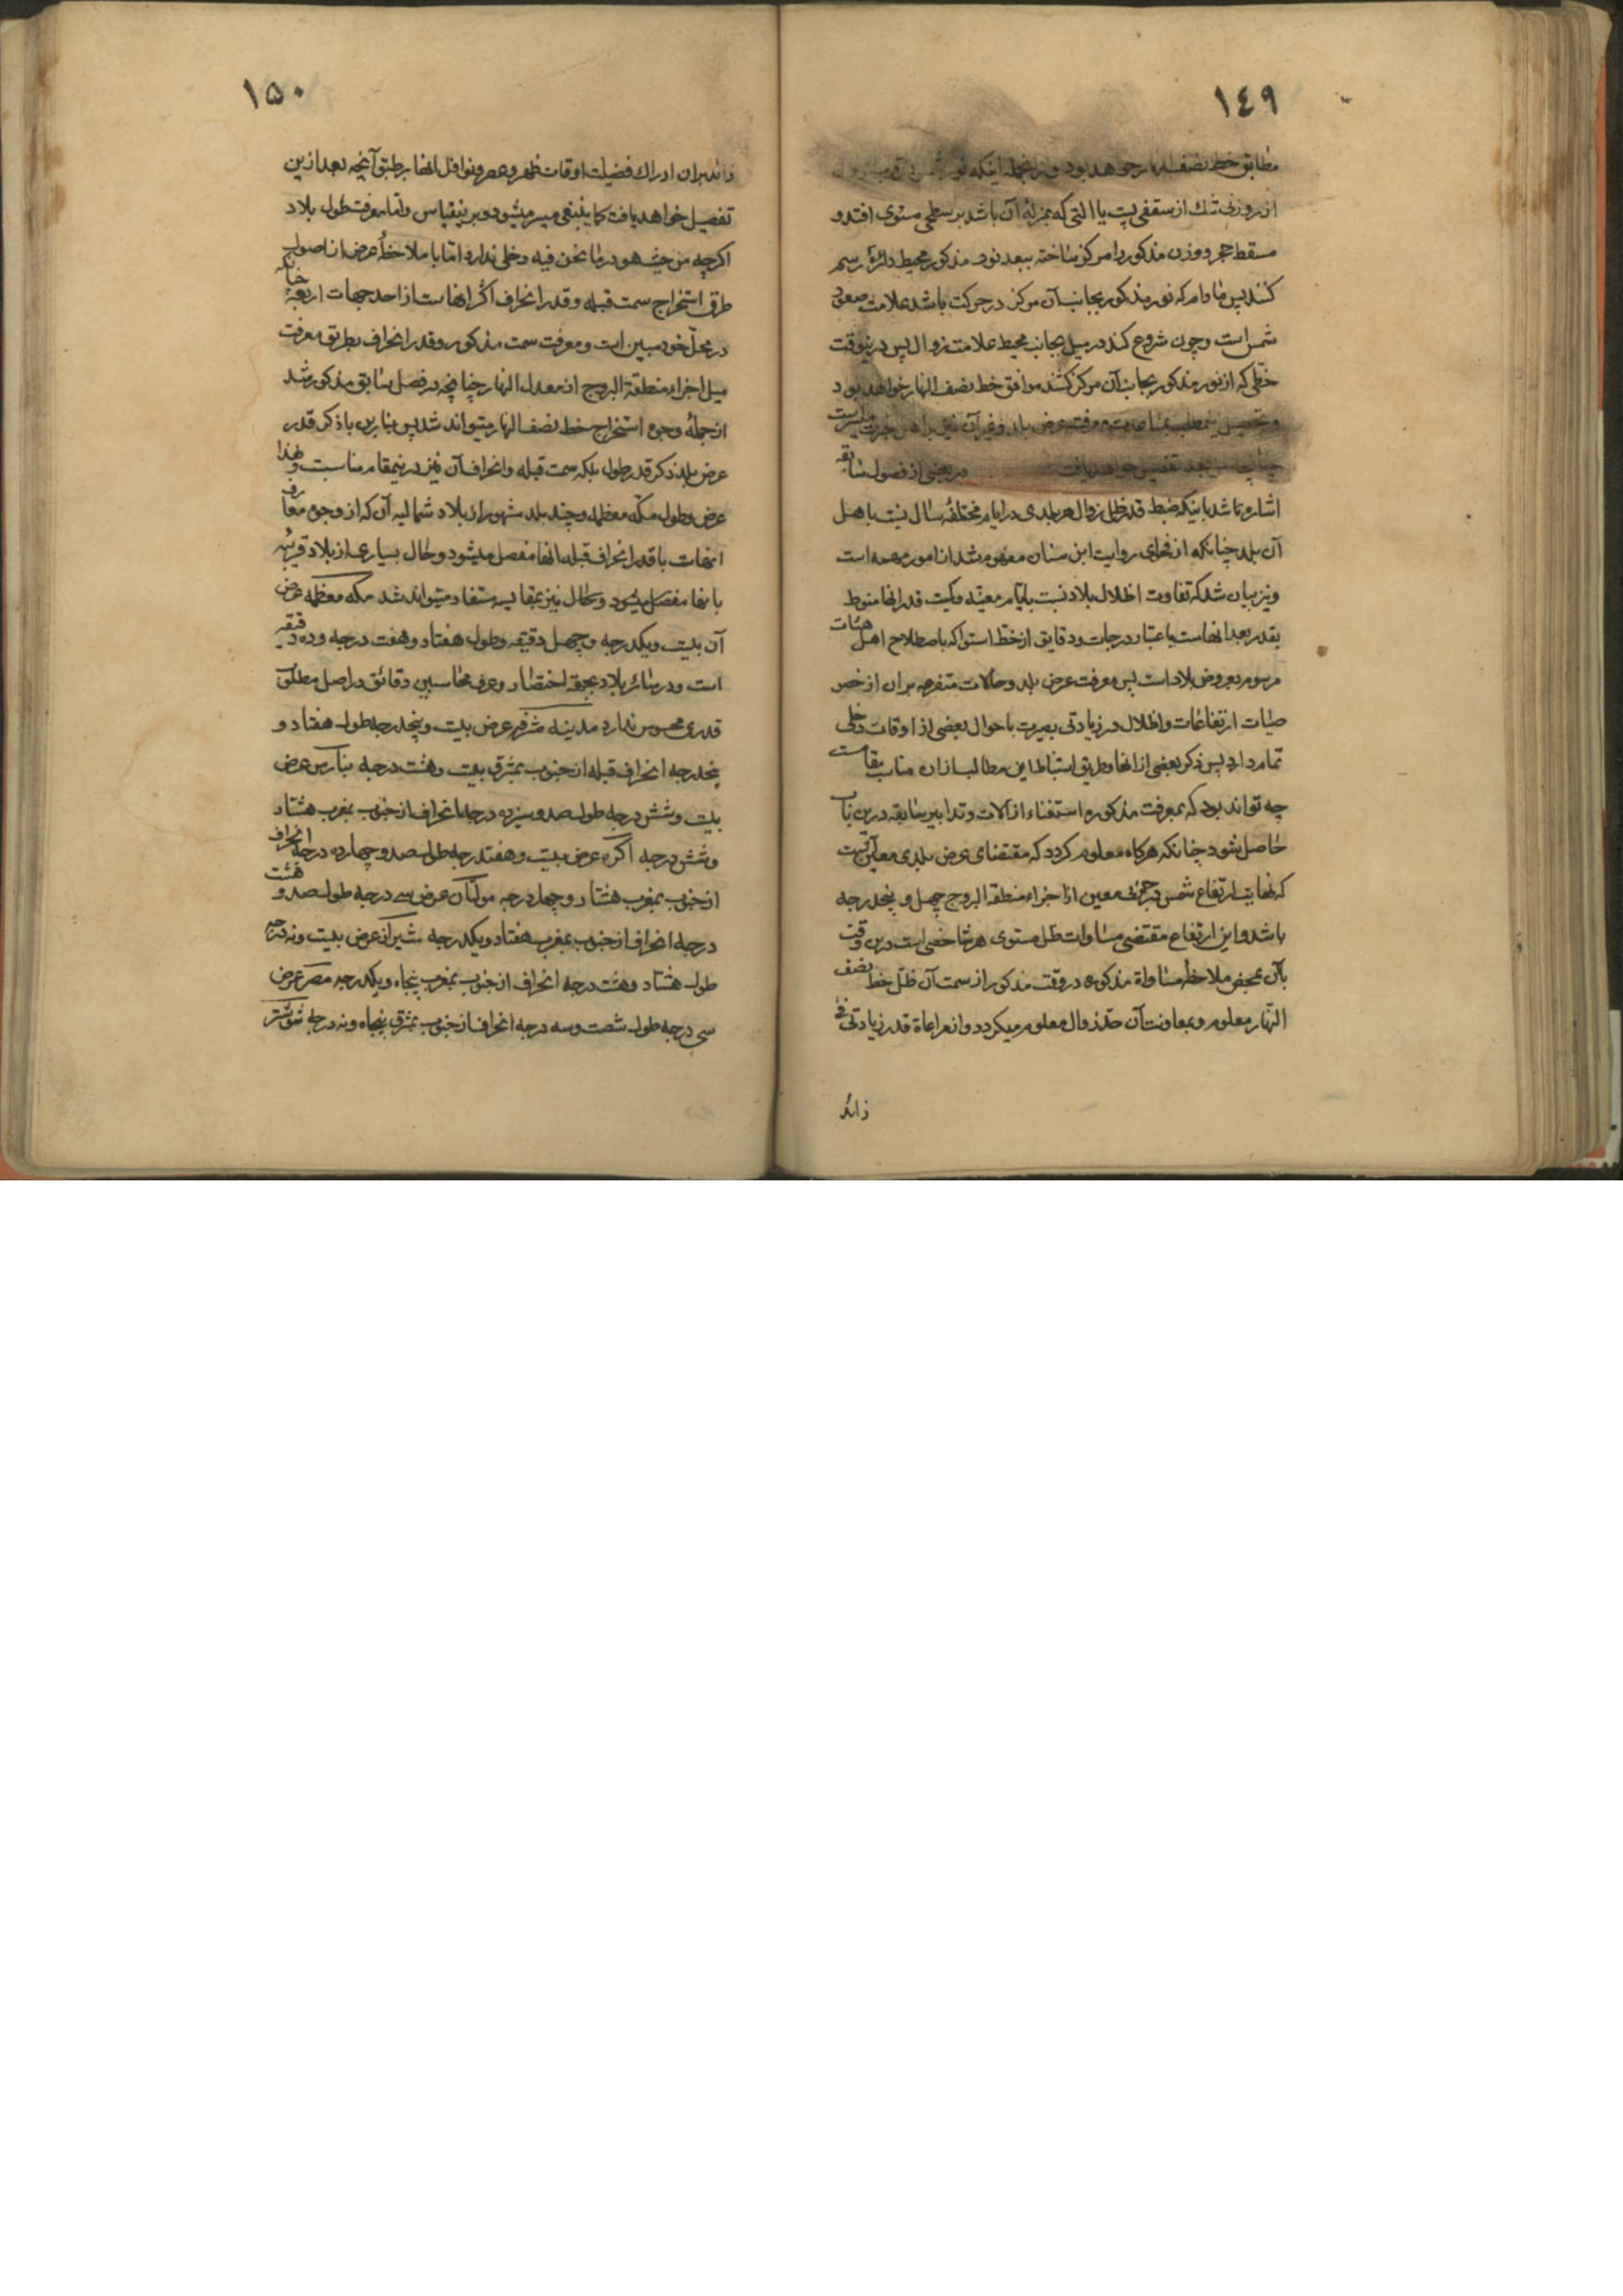 ١٤٩
مطابق خط نصف النهار خواهد بود و از انجمله اینکه نور شمس
از روزنی تنك از سقفی پست یا التی که بمنزلهٔ آن باشد بر سطحی مستوی افتد و
مسقط حجر و وزن مذکور را مرکز ساخته ببعد نور مذکور محیط دائرهٔ رسم
کنند پس مادام که نور مذکور بجانب آن مرکز در حرکت باشد علامت صعود
شمس است و چون شروع کند در میل بجانب محیط علامت زوال پس درینوقت
خطی که از نور مذکور بجانب آن مرکز کشند موافق خط نصف النهار خواهد بود
و تحصیل اینمطلب بمناسبت معرفت عرض بلد و غیر آن نیز
خواهد یافت در بعضی از فصول سابقه
اشاره شد باینکه ضبط قدر ظل زوال هر بلدی در ایام مختلفهٔ سال نسبت باهل
آن بلد چنانکه از فحوای روایت ابن سنان مفهوم شد از امور مهمه است
و نیز بیان شد که تفاوت اظلال بلاد نسبت بایام معینه و کمیت قدر انها منوط
بقدر بعد انهاست باعتبار درجات و دقایق از خط استوا که باصطلاح اهل هیئات
مرسوم بعروض بلاد است پس معرفت عرض بلد و حالات متفرعه بران از خصو
صیات ارتفاعات و اظلال در زیادتی بصیرت باحوال بعضی از اوقات دخلی
تمام دارد پس ذکر بعضی از انها و طریق استنباط این مطالب از ان مناسب مقامست
چه تواند بود که بمعرفت مذکوره استغناء از آلات و تدابیر سابقه درین باب
حاصل شود چنانکه هرگاه معلوم کردد که مقتضای عرض بلدی معین آنست
که نهایت ارتفاع شمس در جزئی معین از اجزاء منطقة البروج چهل و پنجدرجه
باشد و این ارتفاع مقتضی مساوات ظل مستوی هر شاخصی است درین وقت
بآن بمحض ملاحظهٔ مساواة مذکوره در وقت مذکور از سمت آن ظل خط نصف
النهار معلوم و بمعاونت آن حد زوال معلوم میکردد و از مراعاة قدر زیادتی فئ
زائد
١٥٠
زائد بران ادراك فضیلت اوقات ظهر و عصر و نوافل انها بر طبق آنچه بعد ازین
تفصیل خواهد یافت کما ینبغی میسر میشود و برینقیاس و اما معرفت طول بلاد
اکرچه من حیث هو در ما نحن فیه دخلی ندارد اما با ملاحظهٔ عرض از اصول
طرق استخراج سمت قبله و قدر انحراف اکثر انهاست از احد جهات اربعه چنانکه
در محل خود مبین است و معرفت سمت مذکور و قدر انحراف بطریق معرفت
میل اجزاء منطقة البروج از معدل النهار چنانچه در فصل سابق مذکور شد
از جملهٔ وجوه استخراج خط نصف النهار میتواند شد پس بنابرین با ذکر قدر
عرض بلد ذکر قدر طول بلکه سمت قبله و انحراف آن نیز درینمقام مناسبست و لهذا
عرض و طول مکه معظمه و چند بلد مشهور از بلاد شمالیه آن که از وجوه معارف
امهات با قدر انحراف قبله انها مفصل میشود و حال بسیاری از بلاد قریبه
بانها مفصل میشود و حال نیز بمقایسه مستفاد میتواند شد مکه معظمه عرض
آن بیست و یکدرجه و چهل دقیقه و طول هفتاد و هفت درجه و ده دقیقه
است و در سائر بلاد بجهة اختصار و عرف محاسبین دقائق در اصل مطلق
قدری محسوس ندارد مدینه مشرفه عرض بیست و پنجدرجه طول هفتاد و
پنجدرجه انحراف قبله از جنوب بمشرق بیست و هشت درجه بنارس عرض
بیست و شش درجه طول صد و سیزده درجه انحراف از جنوب بمغرب هشتاد
و شش درجه اکره عرض بیست و هفتدرجه طول صد و چهارده درجه انحراف
از جنوب بمغرب هشتاد و چهار درجه مولتان عرض سی درجه طول صد و هشت
درجه انحراف از جنوب بمغرب هفتاد و یکدرجه شیراز عرض بیست و نه درجه
طول هشتاد و هشت درجه انحراف از جنوب بمغرب پنجاه و یکدرجه مصر عرض
سی درجه طول شصت و سه درجه انحراف از جنوب بمشرق پنجاه و نه درجه شوشتر